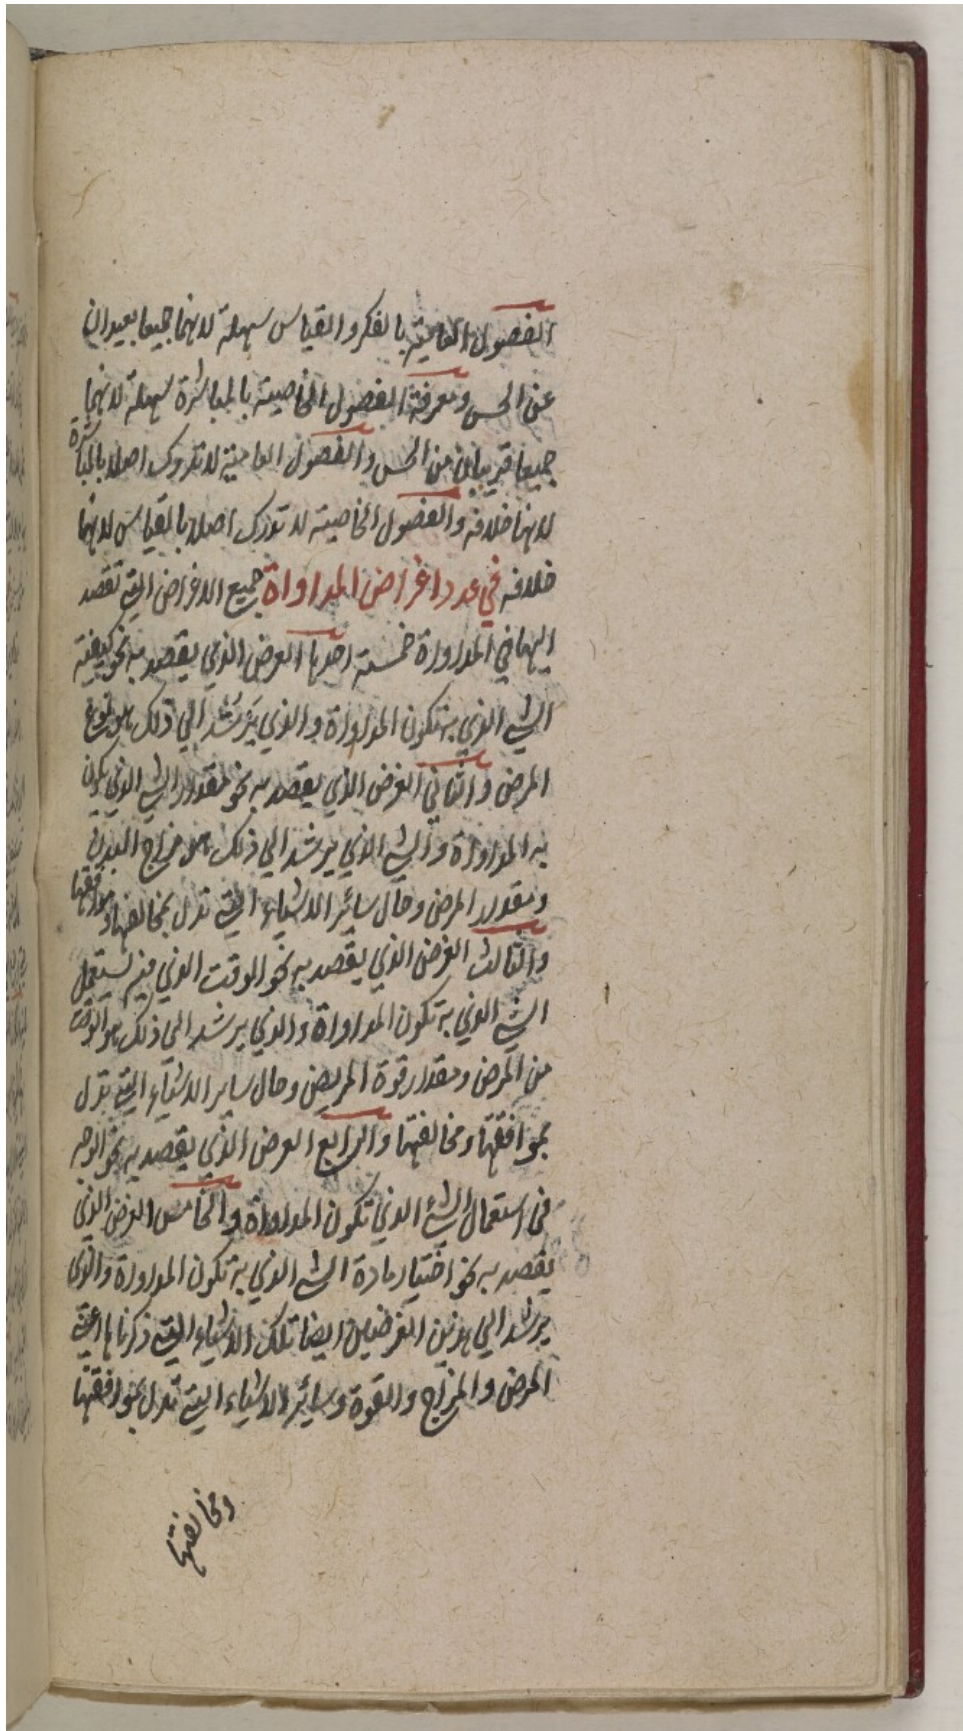 الفصول العامية بالفكر والقياس سهلة لانهما جميعا بعيدان
عن الحس ومعرفة الفصول الخاصية بالمباشرة سهلة لانهما
جميعا قريبان من الحس والفصول العامية لا تدرك اصلا بالمباشرة
لانها خلافه والفصول الخاصية لا تدرك اصلا بالقياس لانها
خلافه في عدد اغراض المداواة جميع الاغراض التي تقصد
اليها في المداواة خمسة احدها الغرض الذي يقصد به نحو كيفية
الشي الذي به تكون المداواة والذي يرشد الي ذلك هو نوع
المرض والثاني الغرض الذي يقصد به نحو مقدار الشي الذي يكون
به المداواة والشي الذي يرشد الي ذلك هو مزاج البدن
ومقدار المرض وحال سائر الاشياء التي تدل بمخالفتها وموافقتها
والثالث الغرض الذي يقصد به نحو الوقت الذي فيه يستعمل
الشي الذي به تكون المداواة والذي يرشد الي ذلك هو الوقت
من المرض ومقدار قوة المريض وحال ساير الاشياء التي تدل
بموافقتها ومخالفتها والرابع الغرض الذي يقصد به نحو الوجه
في استعمال الشئ الذي تكون المداواة والخامس الغرض الذي
يقصد به نحو اختيار مادة الشي الذي به تكون المداواة والذي
يرشد الي هذين الغرضين ايضا تلك الاشياء التي ذكرناها اعني
المرض والمزاج والقوة وسائر الاشياء التي تدل بموافقتها
ومخالفتها